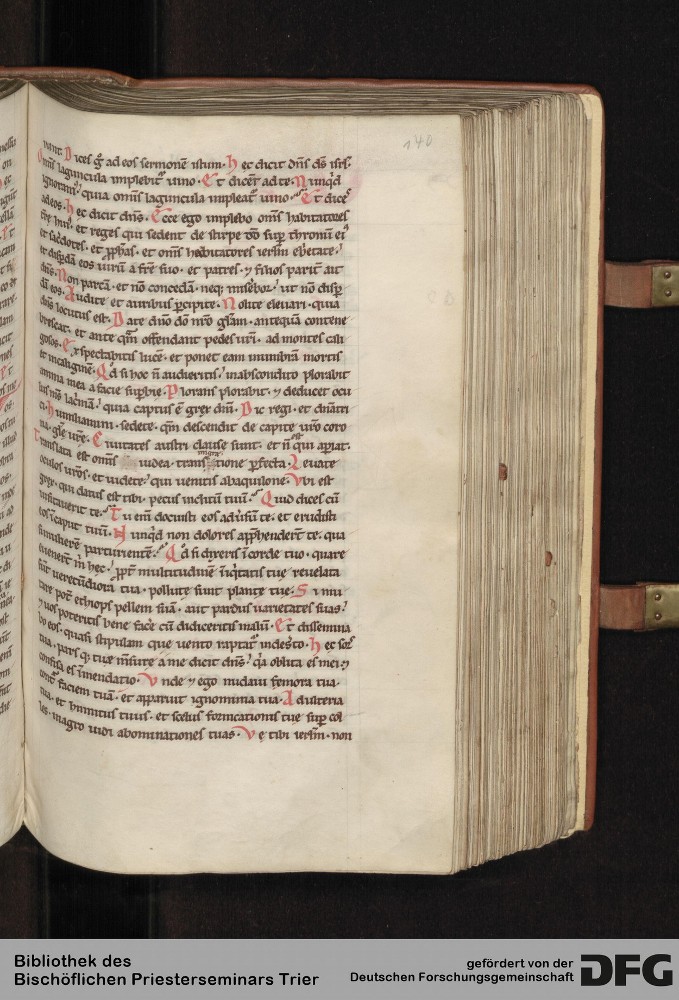 140
nant. Dices g̃ ad eos sermonē istum. Hec dicit dn̄s ds̄ isr̃l.
Om̄is laguncula implebit᷑ uino. Et dicēt ad te. Nunq̃d
ignoram᷒, quia om̄is laguncula impleat᷑ uino. Et dices
ad eos. Hec dicit dn̄s. Ecce ego implebo om̄s habitatores
et reges qui sedent de stirpe dd̄ sup̱ thronū ei᷒
et sac̃dotes. et ꝓph̃as. et om̄s habitatores ierl̃m ebrietate.
et disp̱dā eos uirū a fr̃e suo. et patres. ⁊ filios parit̃ ait
dn̄s. Non parcā. et nō concedā. neq; misebor. ut nō disp̱
dā eos. Audite et auribus p̱cipite. Nolite eleuari. quia
dn̄s locutus est. Date dn̄o dō nr̃o gl̃am. antequā contene
brescat. et ante q̃m offendant pedes ur̃i. ad montes cali
gosos. Expectabitis lucē. et ponet eam in umbrā mortis
et in caliginē. Qd̃ si hoc n̄ audieritis. in abscondito plorabit
anima mea a facie sup̱bie. Plorans plorabit. ⁊ deducet ocu
lus m̄s lac̃mā. quia captus ē grex dn̄i. Dic regi. et dn̄atri
ci. Humiliamini. sedete. q̃m descendit de capite ur̃o coro
na gl̃e ur̃e. Ciuitates austri clause sunt. et n̄ est qui ap̱iat.
Translata est omnis iudea. transmigratione p̱fecta. Leuate
oculos ur̃os. et uidete. qui uenitis ab aquilone. Vbi est
grex. qui datus est tibi. pecus inclitū tuū. Quid dices cū
uisitauerit te. Tu eni᷒ docuisti eos aduersū te. et erudisti
eos in caput tuū. Nunq̃d non dolores app̱henderēt te. qua
si mulierē parturientē. Qd̃ si dixeris in corde tuo. quare
euenerēt m̄ hec. ꝓpt̃ multitudinē iniq̃tatis tue reuelata
sūt uerecūdiora tua. pollute sunt plante tue. Si mu
tare pot̃ ethiops pellem suā. aut pardus uarietates suas.
⁊ uos poteritis bene facẽ cū didiceritis malū. Et dissemina
bo eos. quasi stipulam que uento raptat᷑ in desẽto. Hec sors
tua. pars q; tue m̄sure a me dicit dn̄s. q̃a oblita es mei. ⁊
confisa es in mendatio. Vnde ⁊ ego nudaui femora tua
cont̃ faciem tuā. et apparuit ignominia tua. Adulteria
tua. et hinnitus tuus. et scelus fornicationis tue sup̱ col
les. in agro uidi abominationes tuas. Vę tibi ierl̃m. non
Bibliothek des
Bischöflichen Priesterseminars Trier
gefördert von der
Deutschen Forschungsgemeinschaft
DFG